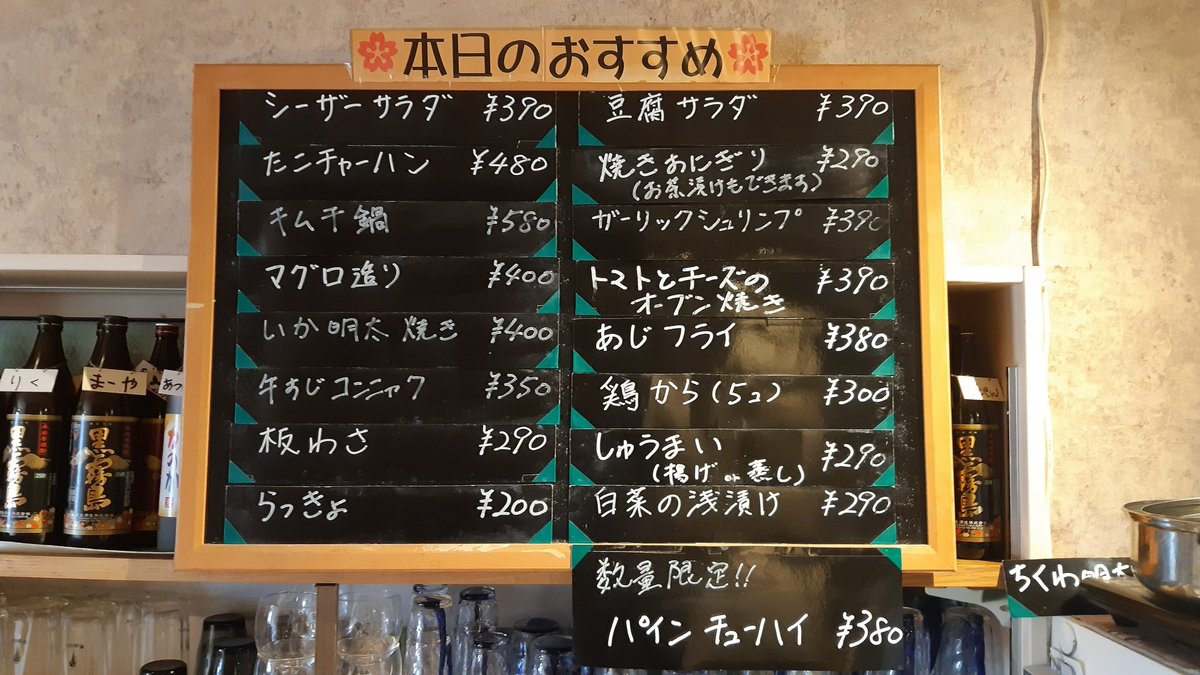 本日のおすすめ
シーザーサラダ ¥390
たこチャーハン ¥480
キムチ鍋 ¥580
マグロ造り ¥400
いか明太焼き ¥400
牛すじコンニャク ¥350
板わさ ¥290
らっきょ ¥200
豆腐サラダ ¥390
焼きおにぎり ¥290
(お茶漬けもできます)
ガーリックシュリンプ ¥390
トマトとチーズの ¥390
オーブン焼き
あじフライ ¥380
鶏から(5コ) ¥300
しゅうまい ¥290
(揚げor蒸し)
白菜の浅漬け ¥290
数量限定!!
パインチューハイ ¥380
ちくわ明太
りく
まーや
あつ
黒霧島
黒霧島
黒霧島